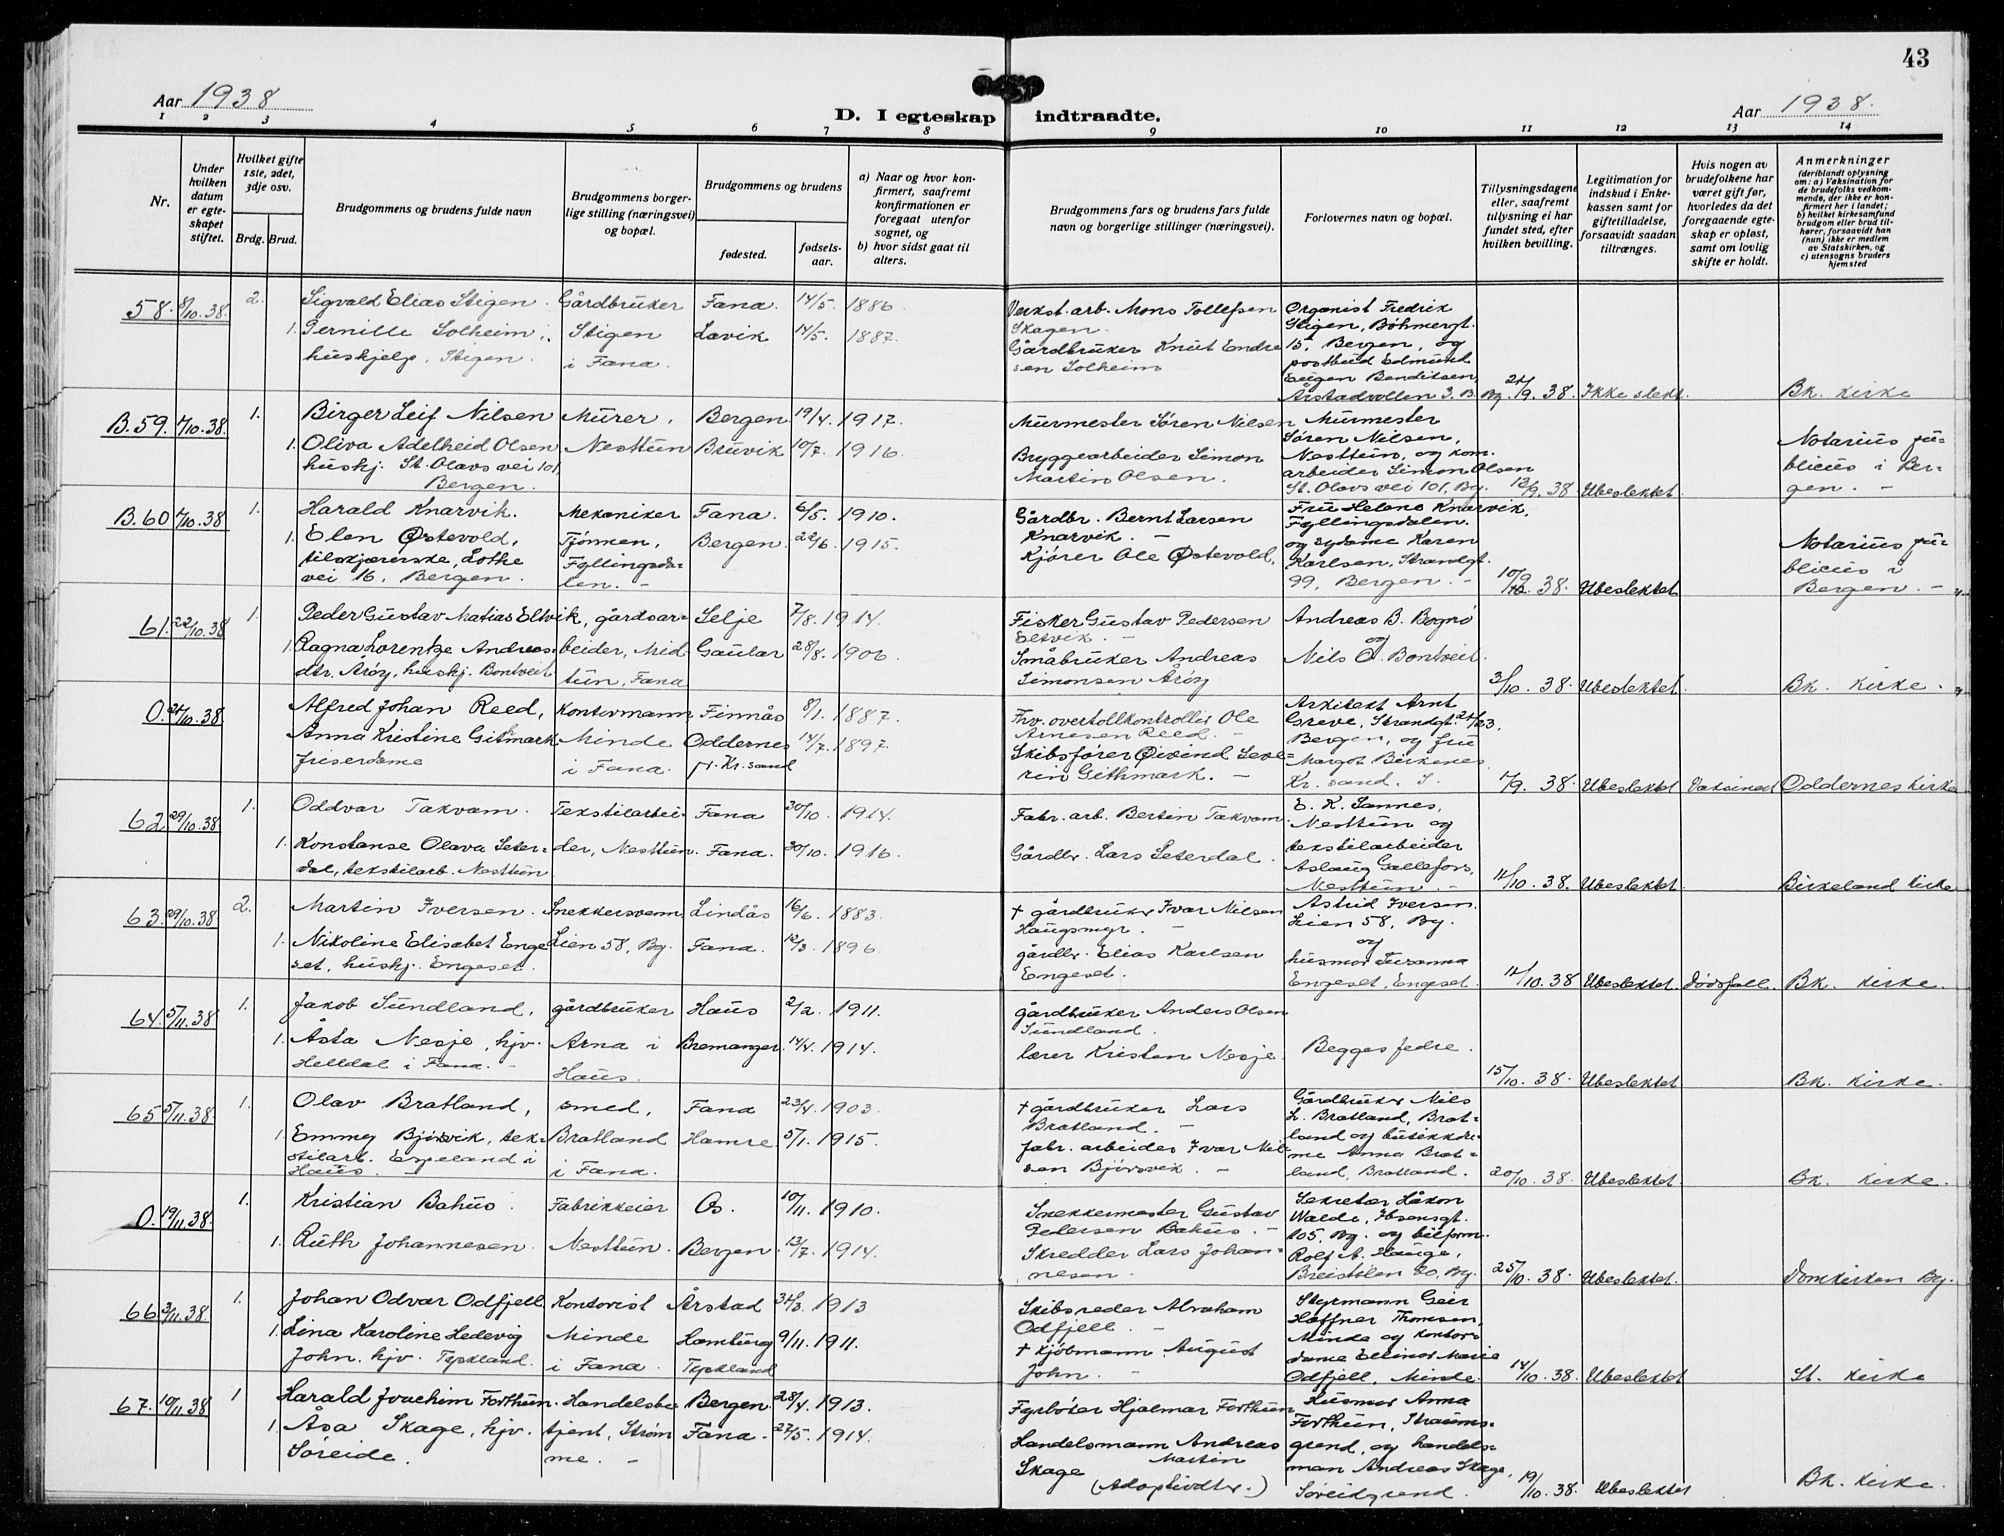 43
Aar 1938
D. I egteskap indtraadte.
Aar 1938.
1 2 3 4 5 6 7 8 9 10 11 12 13 14
Nr.
Under hvilken datum er egteskapet stiftet.
Hvilket gifte 1ste, 2det, 3dje osv.
Brdg. Brud.
Brudgommens og brudens fulde navn
Brudgommens borgerlige stilling (næringsvei) og bopæl.
Brudgommens og brudens
fødested.
fødselsaar.
a) Naar og hvor konfirmert, saafremt konfirmationen er foregaat utenfor sognet, og
b) hvor sidst gaat til alters.
Brudgommens fars og brudens fars fulde navn og borgerlige stillinger (næringsvei).
Forlovernes navn og bopæl.
Tillysningsdagene eller, saafremt tillysning ei har fundet sted, efter hvilken bevilling.
Legitimation for indskud i Enkekassen samt for giftetilladelse, forsaavidt saadan tiltrænges.
Hvis nogen av brudefolkene har været gift før, hvorledes da det foregaaende egteskap er opløst, samt om lovlig skifte er holdt.
Anmerkninger (deriblandt oplysning om: a) Vaksination for de brudefolks vedkommende, der ikke er konfirmert her i landet; b) hvilket kirkesamfund brudgom eller brud tilhører, forsaavidt han (hun) ikke er medlem av Statskirken, og c) utensogns bruders hjemsted
58. 8/10.38. 2. Sigvald Elias Stigen. Gårdbruker Fana. 14/5. 1886
1. Pernille Solheim, Stigen Lavik 14/5. 1887.
huskjelp, Stigen. i Fana.
Verkst. arb. Mons Tollefsen
Skagen.
Gårdbruker Knut Endre
sen Solheim
Organist Fredrik
Stigen, Böhmergt.
15, Bergen, og
postbud Edmund
Eugen Benditsen,
Årstadvollen 3. B. Bg. 24/9. 38. Ikke slekt. Bk. kirke
B.59. 1/10.38. 1. Birger Leif Nilsen Murer, Bergen 19/4. 1917.
1. Oliva Adelheid Olsen Nesttun Bruvik 10/7. 1916.
huskj. St. Olavs vei 101,
Bergen.
Murmester Søren Nilsen
Bryggearbeider Simon
Martin Olsen.
Murmester
Søren Nilsen,
Nesttun, og kom.
arbeider Simon Olsen
St. Olavs vei 101, Bg. 13/9. 38 Ubeslektet.
Notarius pu-
blicus i Ber-
gen. -
B.60 1/10.38 1. Harald Knarvik. Mekaniker Fana. 6/5. 1910.
1. Elen Østevold, Tjønnen, Bergen. 22/6. 1915.
tilskjærerske, Lothe Fyllingsda-
vei 16, Bergen. len. -
Gårdbr. Bernt Larsen
Knarvik. -
Kjører Ole Østevold,
Fru Helene Knarvik,
Fyllingsdalen.
og sydame Karen
Karlsen, Strandgt.
99, Bergen. - 10/9. 38. Ubeslektet
Notarius pu-
blicus i
Bergen. -
61. 22/10.38 1. Peder Gustav Matias Eltvik, gårdsar- Selje 7/8. 1914.
1. Ragna Lorentze Andreas- beider, Mid- Gaular 28/8. 1906.
dtr. Årøy, huskj. Bontveit tun, Fana
Fisker Gustav Pedersen
Eltvik. -
Småbruker Andreas
Simonsen Årøy
Andreas B. Bognø
og
Nils O. Bontveit. 3/10. 38. Ubeslektet. Bk. kirke.
O. 24/10.38 Alfred Johan Reed, Kontormann Finnås 8/1. 1887.
Anna Kristine Gitmark Minde Oddernes 14/7. 1897.
friserdame i Fana. pr. Kr.sand
Frv. overtollkontrollør Ole
Arnesen Reed. -
Skibsfører Øivind Seve-
rin Githmark. -
Arkitekt Arnt
Greve, Strandgt. 21/23,
Bergen, og fru
Margot Birkenes
Kr. sand. S. 1/9. 38 Ubeslektet Vaksinert Oddernes kirke
62. 29/10.38 1. Oddvar Takvam. Tekstilarbei- Fana 30/10. 1914.
1. Konstanse Olava Seter- der, Nesttun. Fana. 30/10. 1916.
dal, tekstilarb. Nesttun
Fabr. arb. Bertin Takvam.
Gårdbr. Lars Seterdal.
E. K. Sannes,
Nesttun og
tekstilarbeider
Aslaug Gallefors,
Nesttun. - 11/10. 38. Ubeslektet Birkeland kirke
63. 29/10.38 2. Martin Iversen. Snekkersvenn Lindås 16/6. 1883.
1. Nikoline Elisabet Enge- Lien 58, Bg. Fana. 12/3. 1896.
set, huskj. Engeset.
+ gårdbruker Ivar Nilsen
Haugsmyr. -
gårdbr. Elias Karlsen
Engeset.
Astrid Iversen.
Lien 58, Bg.
og
husmor Susanna
Engeset, Engeset. 12/10. 38 Ubeslektet. Dødsfall. Bk. kirke.
64. 5/11.38 1. Jakob Sundland, gårdbruker Haus 2/2. 1911.
1. Åsta Nesje, hjv. Arna i Bremanger 14/4. 1914.
Helldal i Fana. - Haus.
gårdbruker Anders Olsen
Sundland.
lærer Kristen Nesje.
Begges fedre. 15/10. 38. Ubeslektet Bk. kirke.
65 5/11.38 1. Olav Bratland, smed, Fana 23/4. 1903.
1. Emmy Bjørsvik, tek- Bratland Hamre 5/1. 1915.
stilarb. Espeland i i Fana.
Haus. -
+ gårdbruker Lars
Bratland. -
Fabr. arbeider Ivar Nil-
sen Bjørsvik. -
Gårdbruker Nils
L. Bratland, Brat-
land og butikkda-
me Anna Brat-
land, Bratland. 20/10. 38. Ubeslektet. Bk. kirke.
O. 19/11.38. 1. Kristian Bahus. Fabrikkeier Os. 10/11. 1910.
1. Ruth Johannesen. Nesttun. Bergen. 13/7. 1914.
Snekkermester Gustav
Pedersen Bahus. -
Skredder Lars Johan-
nesen.
Sekretær Håkon
Walde, Ibsensgt.
105, Bg. og bilform.
Rolf A. Hauge,
Breistølen 20, Bg. 25/10. 38. Ubeslektet. Domkirken Bg.
66 3/11.38. 1. Johan Odvar Odfjell. Kontorist Årstad 31/3. 1913
1. Lina Karoline Hedevig Minde Hamburg 9/11. 1911.
John. hjv. Tyskland. i Fana. Tyskland
Skibsreder Abraham
Odfjell. -
+ Kjøbmann August
John. -
Styrmann Geir
Haffner Thomsen,
Minde og kontor-
dame Ellinor Marie
Odfjell, Minde. 14/10. 38. Ubeslektet St. kirke
67. 19/11.38 1 Harald Joachim Forthun. Handelsbe- Bergen. 28/4. 1913.
1. Åsa Skage, hjv. tjent, Strøm- Fana. 27/5. 1914.
Søreide. me. -
Fyrbøter Hjalmar Forthun
Handelsmann Andreas
Martin
Skage (Adoptivdtr.)
Husmor Anna
Forthun, Straums-
grend, og handels-
man Andreas Skage,
Søreidgrend. 19/10. 38. Ubeslektet Bk. kirke.